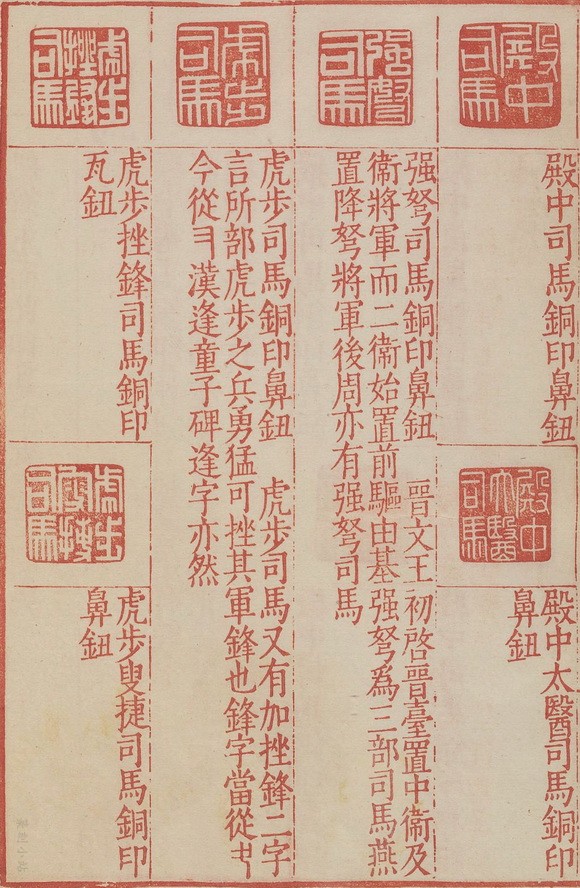 殿中司馬
殿中司馬銅印鼻鈕
殿中太醫司馬
殿中太醫司馬銅印
鼻鈕
强弩司馬
强弩司馬銅印鼻鈕　晉文王初啓晉臺置中衞及
衞將軍而二衞始置前驅由基强弩爲三部司馬燕
置降弩將軍後周亦有强弩司馬
虎步司馬
虎步司馬銅印鼻鈕　虎步司馬又有加挫鋒二字
言所部虎步之兵勇猛可挫其軍鋒也鋒字當從
今從ヨ漢逢童子碑逢字亦然
虎步挫鋒司馬
虎步挫鋒司馬銅印
瓦鈕
虎步叟捷司馬
虎步叟捷司馬銅印
鼻鈕